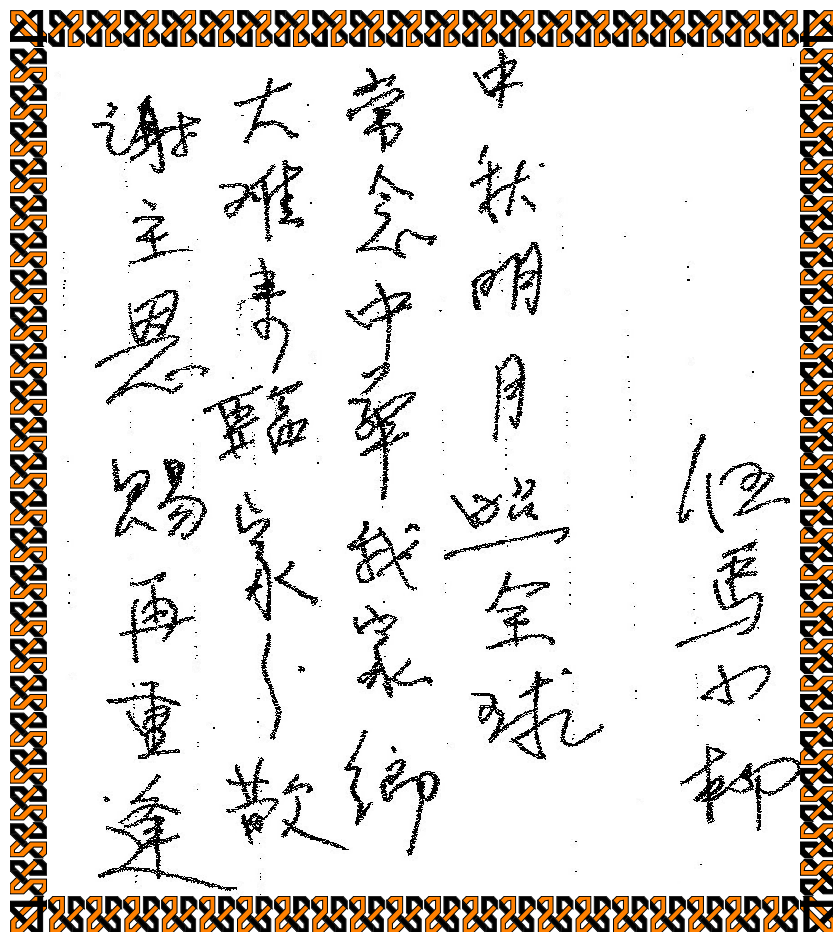 伍馬小柳
中秋明月照全球
常念中華我家鄉
大难来臨家々散
謝主恩賜再重逢